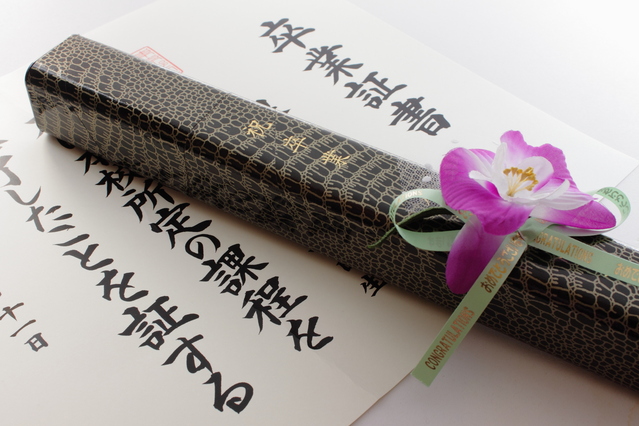 卒業証書
本校所定の課程を
了したことを証する
十一日
祝卒業
おめでとう
CONGRATULATIONS
CONGRATULATIONS